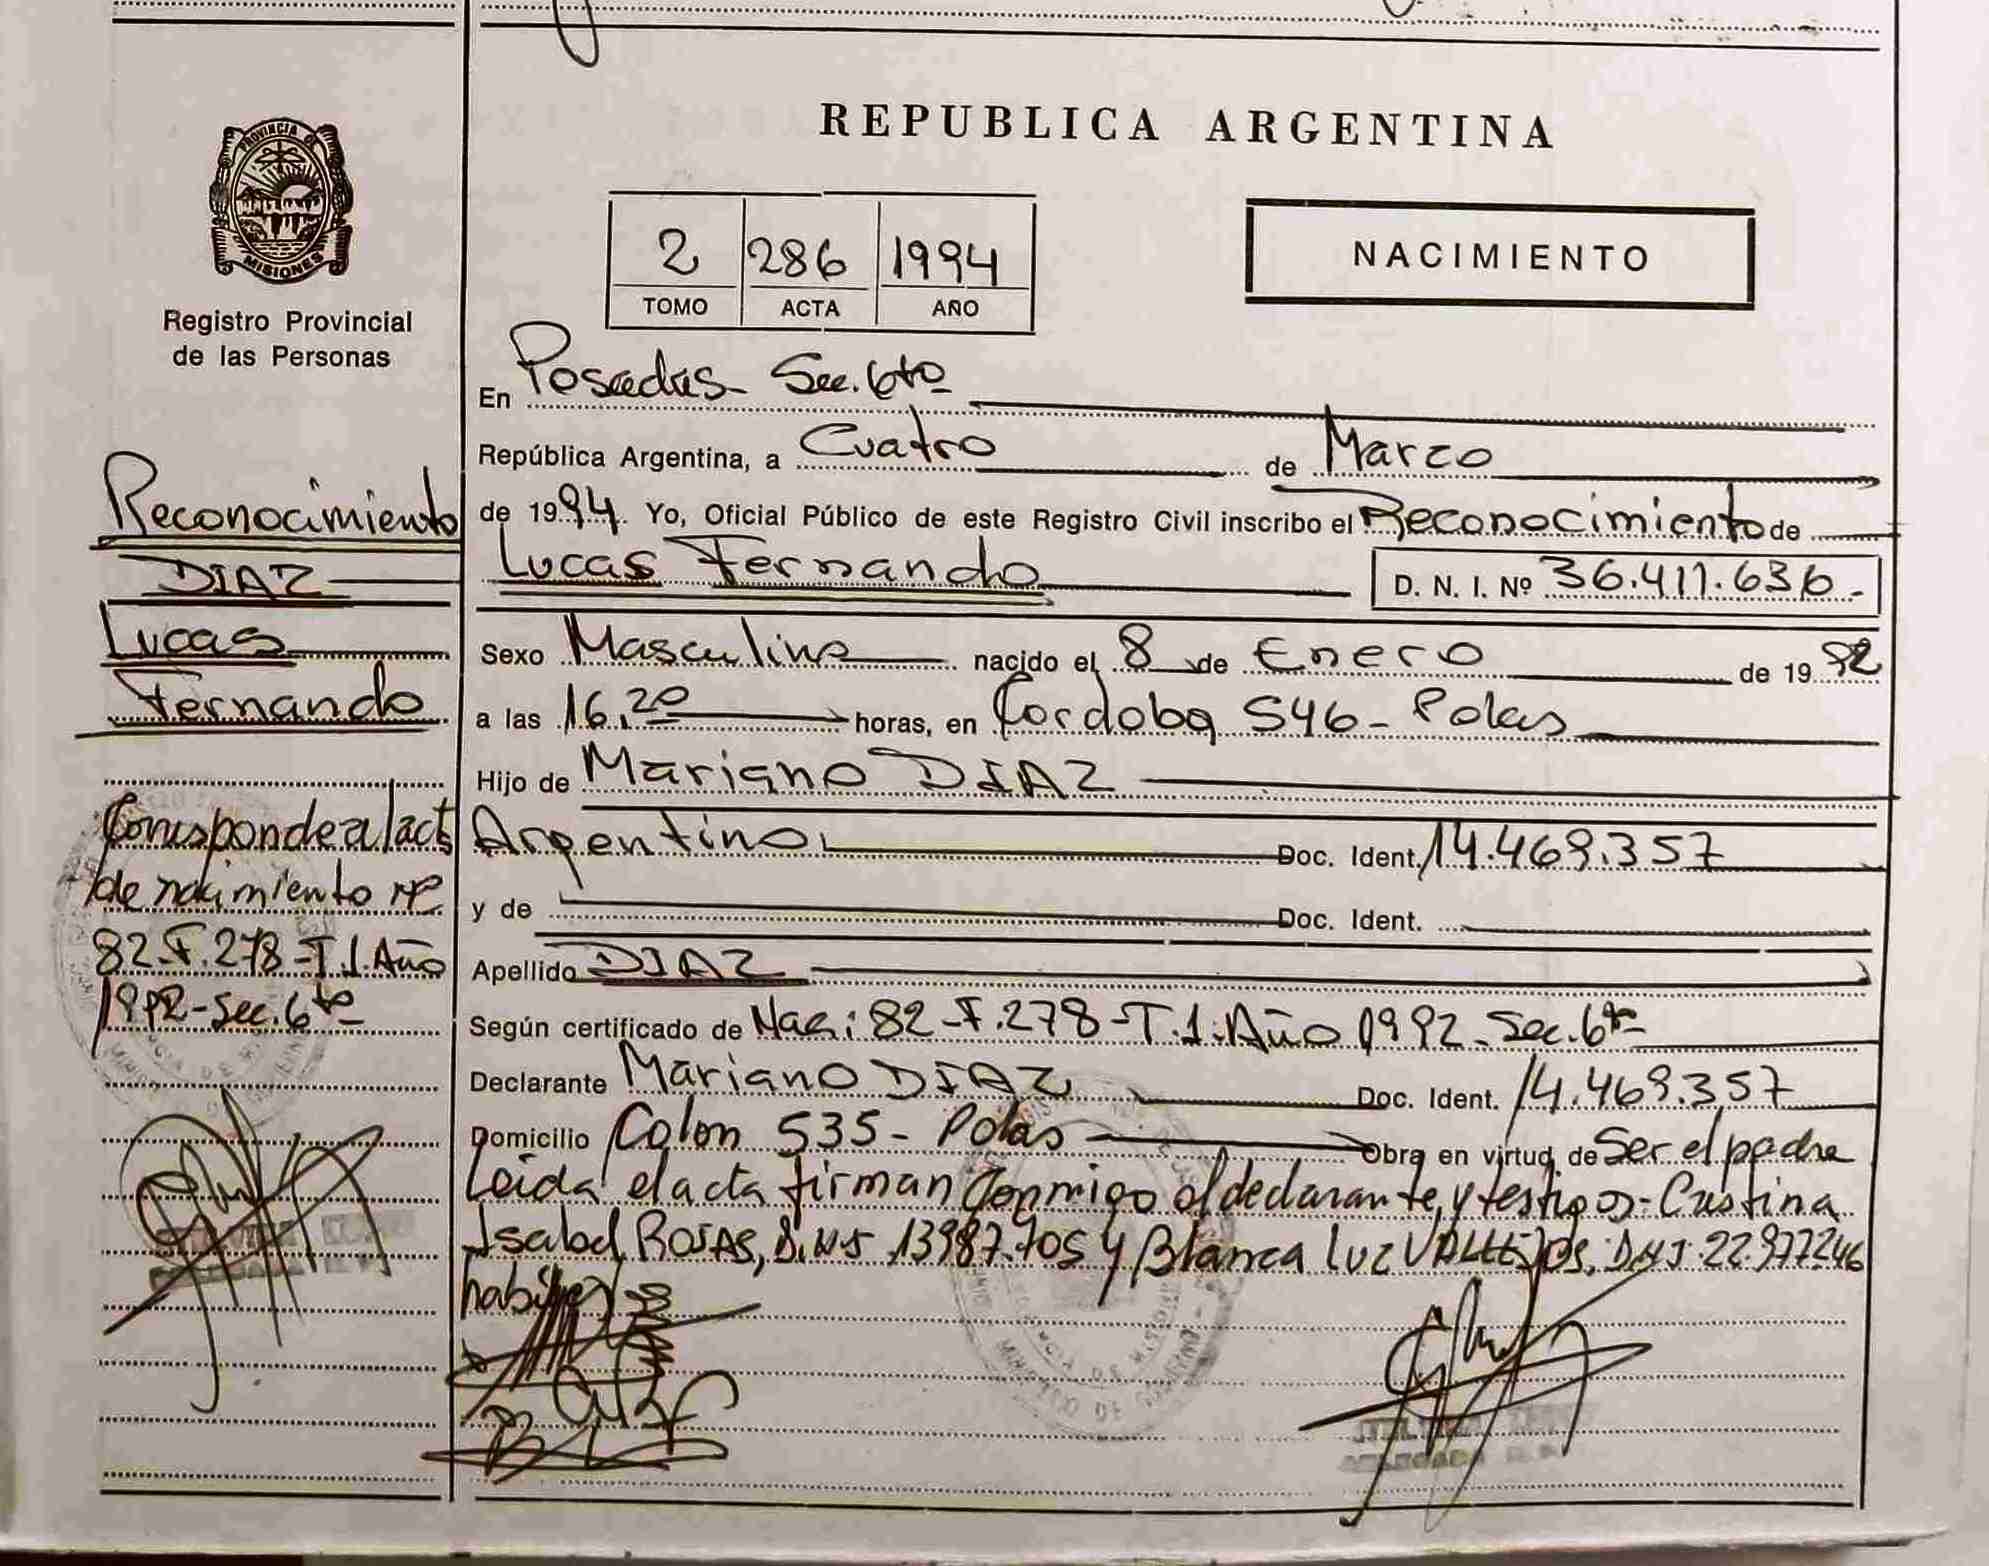 PROVINCIA DE
MISIONES
Registro Provincial
de las Personas
Reconocimiento
DIAZ
Lucas
Fernando
Corresponde al acta
de nacimiento Nº
82-F.278-T.1.Año
1992-Sec.6ta
REPUBLICA ARGENTINA
2 286 1994
TOMO ACTA AÑO
NACIMIENTO
En Posadas- Sec. 6ta
República Argentina, a Cuatro de Marzo
de 1994. Yo, Oficial Público de este Registro Civil inscribo el Reconocimiento de
Lucas Fernando D. N. I. Nº 36.411.636.-
Sexo Masculino nacido el 8 de Enero de 1992
a las 16,20 horas, en Cordoba 546- Pdas
Hijo de Mariano DIAZ
Argentino Doc. Ident. 14.469.357
y de Doc. Ident.
Apellido DIAZ
Según certificado de Nac: 82-F.278-T.1.Año 1992-Sec.6ta
Declarante Mariano DIAZ Doc. Ident. 14.469.357
Domicilio Colon 535- Pdas Obra en virtud de Ser el padre
Leida el acta firman conmigo el declarante y testigos- Cristina
Isabel ROJAS, D.N.I. 13987.705 y Blanca Luz VALLEJOS, DNI 22.977246
habiles